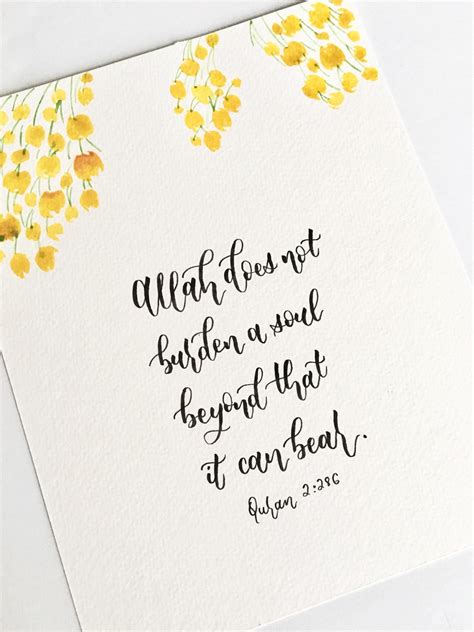 Allah does not
burden a soul
beyond that
it can bear.
Quran 2:286